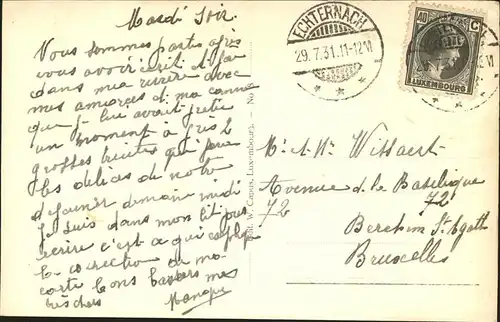 Mardi Soir
Vous sommes partis après
vous avoir écrit et j'ai
dans ma rivière avec
mes amorces et ma canne
que j'ai lui avait prêtée
un moment à pris 2
grosses truites qui feront
les délices de notre
déjeuner demain midi
je suis dans mon lit pour
écrire c'est ce qui explique
la correction de ma
carte bons baisers mes
très chers
ECHTERNACH
29.7.31.11-12V
40
LUXEMBOURG
Edit. W. Capus, Luxembourg. — No
Mr. & Me Wittaert
Avenue de la Basilique
72
72
Berchem Ste Agathe
Bruxelles